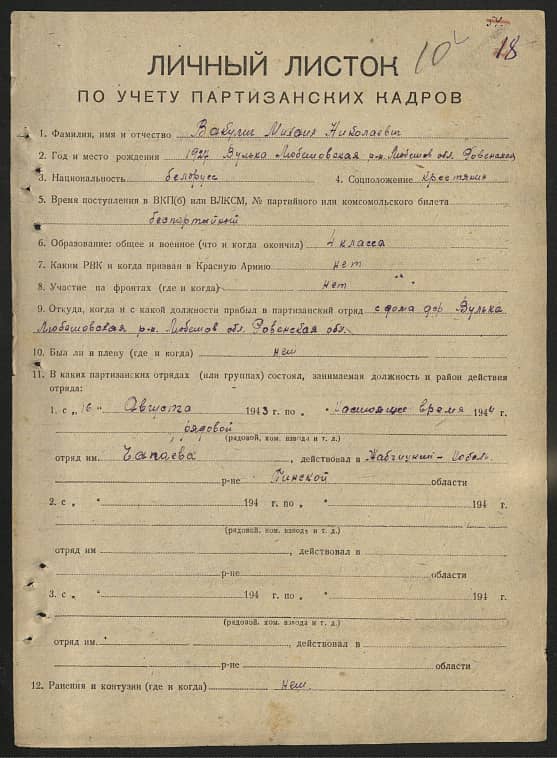 10 18
ЛИЧНЫЙ ЛИСТОК
ПО УЧЕТУ ПАРТИЗАНСКИХ КАДРОВ
1. Фамилия, имя и отчество Михаил Николаевич
2. Год и место рождения 1927 Вулька Любешовская р-н. Любешов обл. Ровенская
3. Национальность белорусс 4. Соцположение крестянин
5. Время поступления в ВКП(б) или ВЛКСМ, № партийного или комсомольского билета
беспартыйный
6. Образование: общее и военное (что и когда окончил) 4 класса
7. Каким РВК и когда призван в Красную Армию нет
8. Участие на фронтах (где и когда) нет "
9. Откуда, когда и с какой должности прибыл в партизанский отряд с дома дер Вулька
Любешовская р-н. Любешов обл. Ровенская обл.
10. Был ли в плену (где и когда) нет
11. В каких партизанских отрядах (или группах) состоял, занимаемая должность и район действия
отряда:
1. с „ 16 " Августа 1943 г. по „ Настоящее время 1944 г.
рядовой
(рядовой, ком. взвода и т. д.)
отряд им. Чапаева, действовал в
р-не Пинской области
2. с „ " 194 г. по „ " 194 г.
(рядовой, ком. взвода и т. д.)
отряд им , действовал в
р-не области
3. с „ " 194 г. по „ " 194 г.
(рядовой, ком. взвода и т. д.)
отряд им. , действовал в
р-не области
12. Ранения и контузии (где и когда) нет.